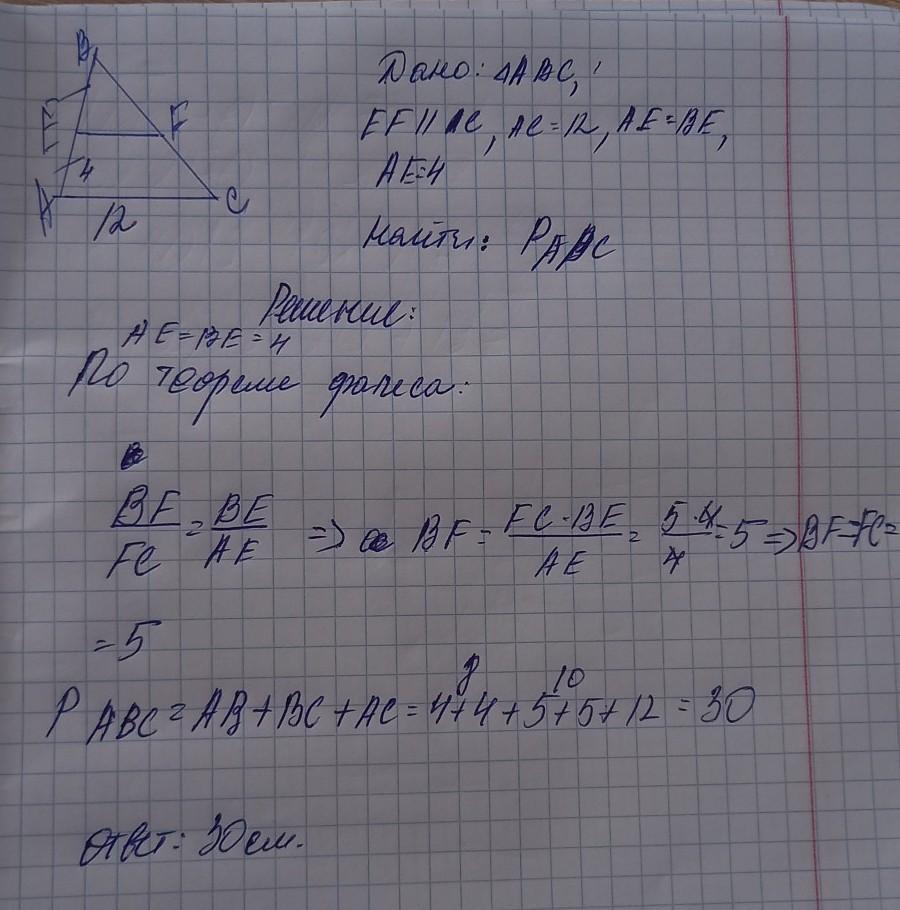 B
E F
4
A C
12
Дано: △ABC,
EF || AC, AC=12, AE=BE,
AE=4
Найти: P ABC
Решение:
AE=BE=4
По теореме фалеса:
BF/FC = BE/AE => BF = FC·BE/AE = 5·4/4 = 5 => BF=FC=
= 5
8 10
P ABC = AB+BC+AC = 4+4+5+5+12 = 30
Ответ: 30см.